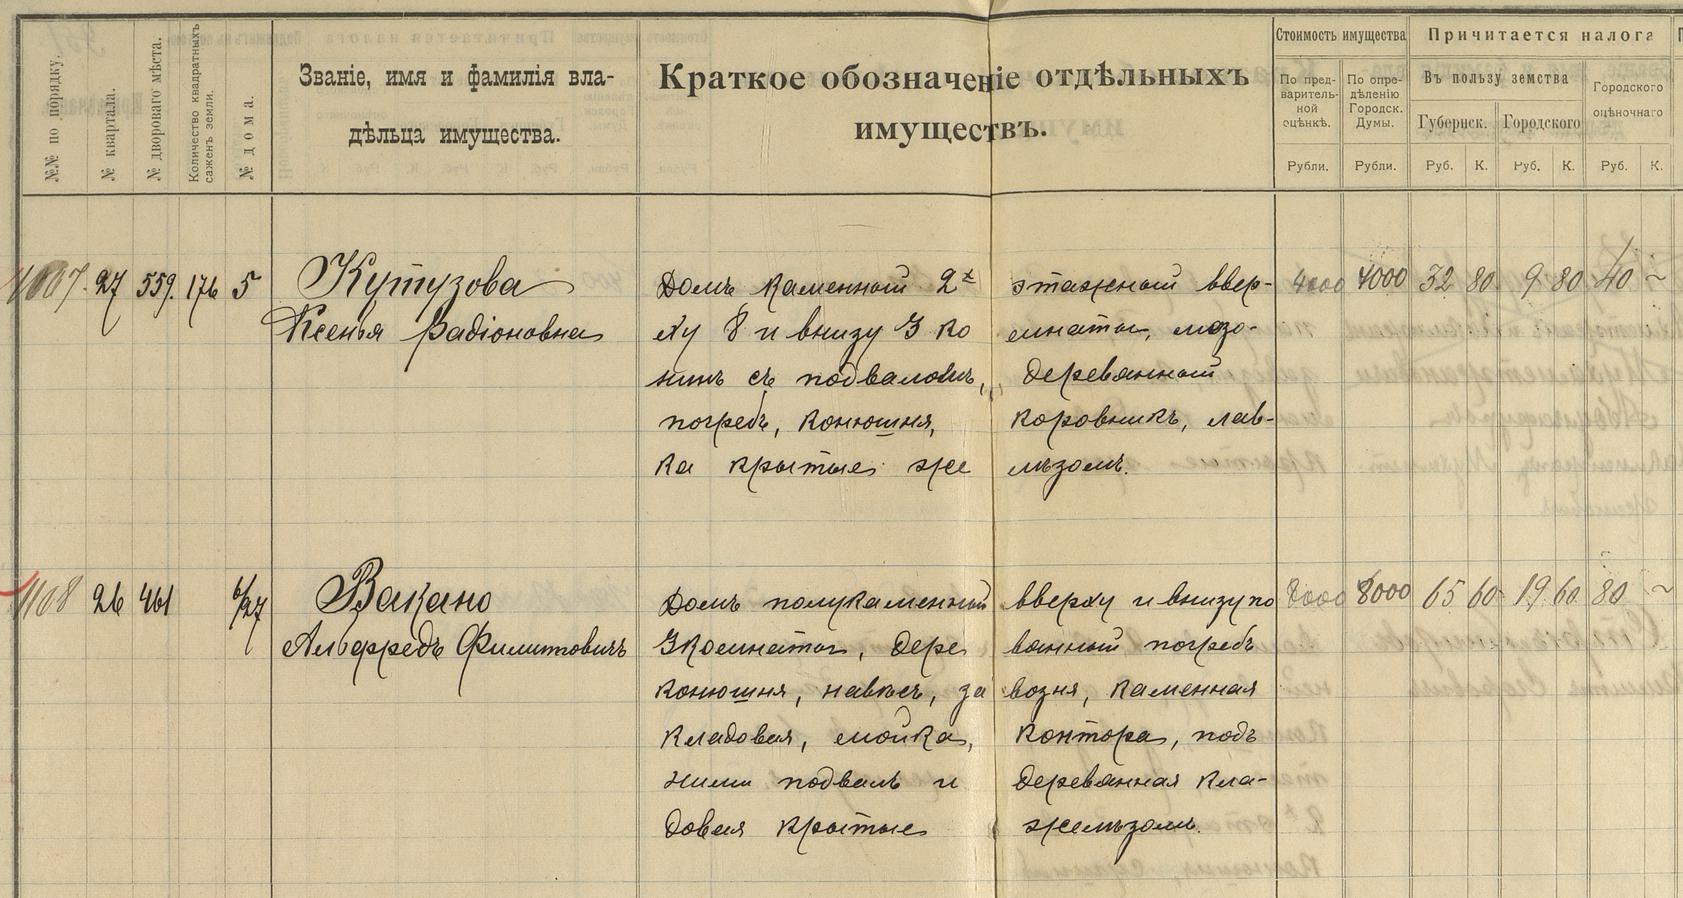 №№ по порядку.
№ квартала.
№ двороваго мѣста.
Количество квадратныхъ сажень земли.
№ дома.
Званіе, имя и фамилія вла-
дѣльца имущества.
Краткое обозначеніе отдѣльныхъ
имуществъ.
Стоимость имущества
По пред-
варитель-
ной
оцѣнкѣ.
По опре-
дѣленію
Городск.
Думы.
Рубли.
Рубли.
Причитается налога
Въ пользу земства
Губернск.
Городского
Городского
оцѣночнаго
Руб. К. Руб. К. Руб. К.
1107. 27 559. 176 5 Кутузова Домъ каменный 2х этажный ввер- 4000 4000 32 80 9 80 40 ~
Ксенья Радіоновна ху 8 и внизу 3 комнаты, мезо-
нинъ съ подваломъ, деревянный
погребъ, конюшня, коровникъ, лав-
ка крытые желѣзомъ.
1108 26 461 6/27 Вакано Домъ полукаменный вверху и внизу по 8000 8000 65 60 19 60 80 ~
Альфредъ Филиповичъ 3 комнаты, деревянный погребъ
конюшня, навѣсъ, завозня, каменная
кладовая, мойка, контора, подъ
ними подвалъ и деревянная кла-
довая крытые желѣзомъ.